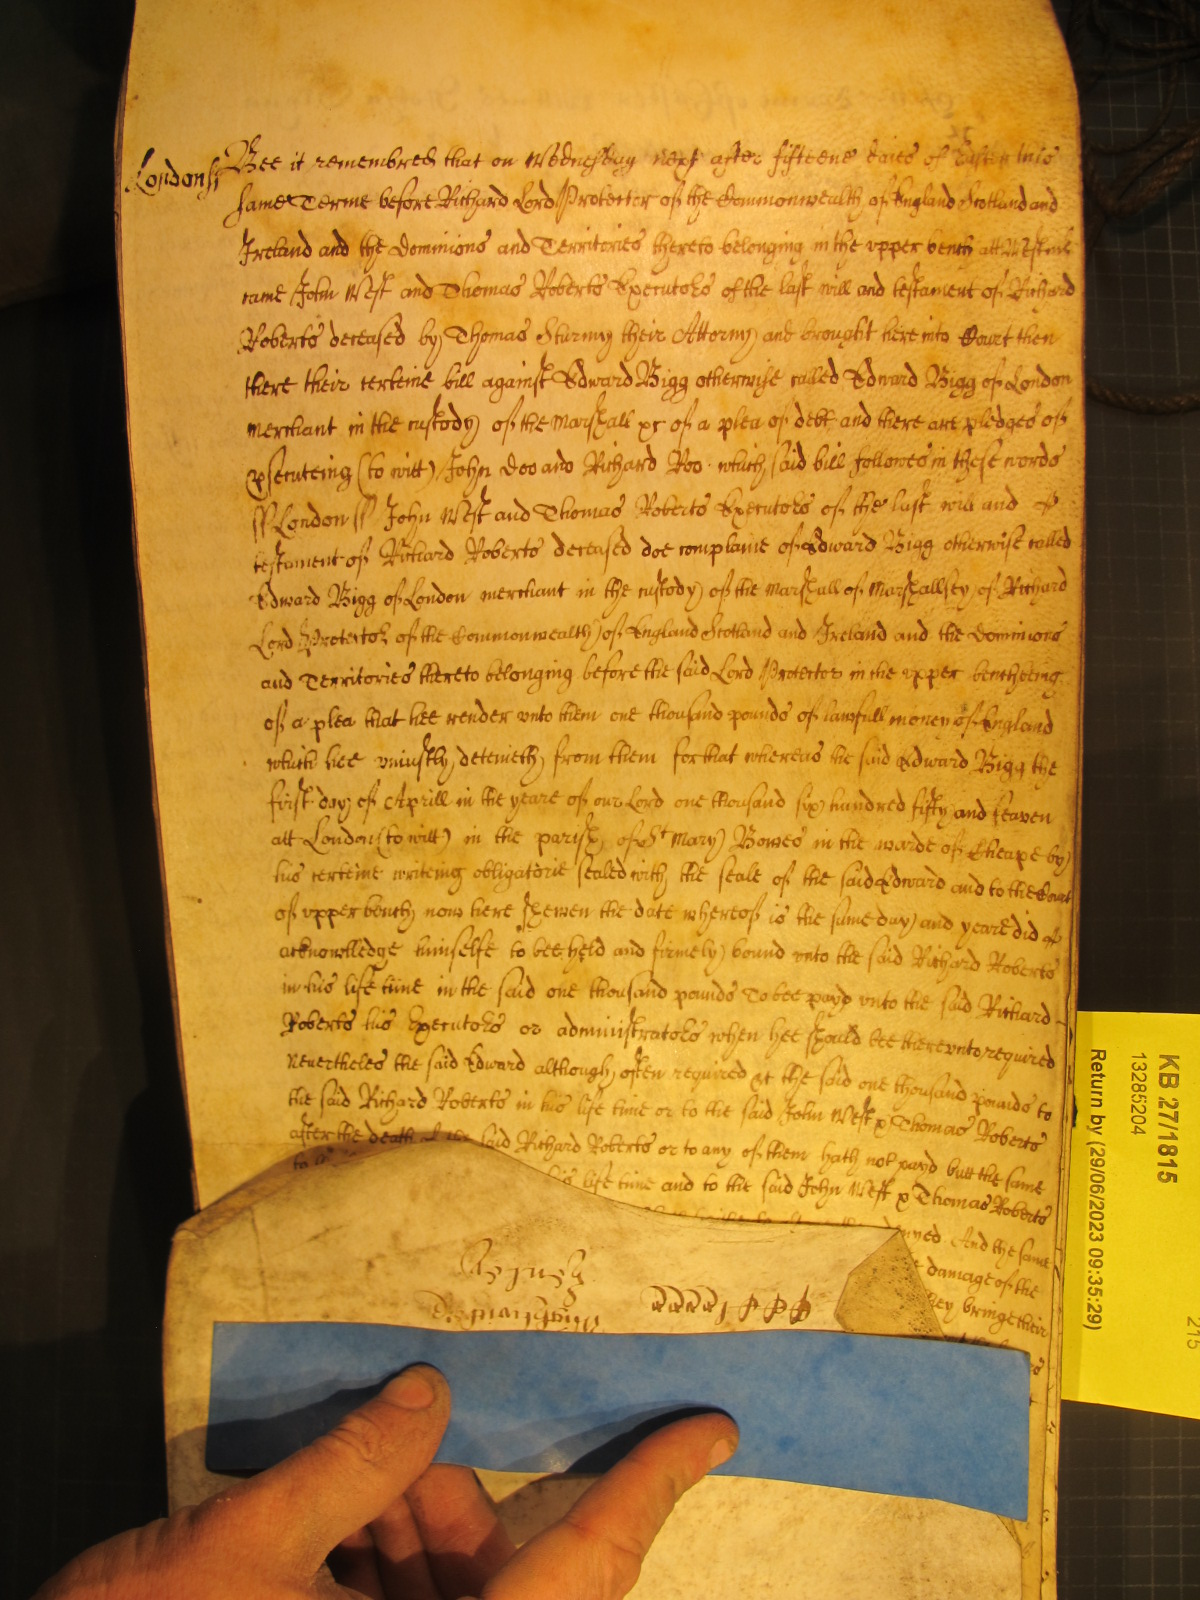 London ss Bee it remembred that on Wednesday next after fifteene daies of Easter this
same Terme before Richard Lord Protector of the Commonwealth of England Scotland and
Ireland and the dominions and Territories thereto belonging in the upper bench att Westmr
came John West and Thomas Roberts Executors of the last will and testament of Richard
Roberts deceased by Thomas Sturmy their Attorny and brought here into Court then
there their certeine bill against Edward Bigg otherwise called Edward Bigg of London
merchant in the custody of the Marshall &c of a plea of debt and there are pledges of
psecuteing (to witt) John Doo and Richard Roo which said bill followes in these words
ss London ss John West and Thomas Roberts Executors of the last will and
testament of Richard Roberts deceased doe complaine of Edward Bigg otherwise called
Edward Bigg of London merchant in the custody of the Marshall of Marshallsey of Richard
Lord Protector of the Commonwealth of England Scotland and Ireland and the dominions
and Territories thereto belonging before the said Lord Protector in the upper bench being
of a plea that hee render unto them one thousand pounds of lawfull money of England
which hee uniustly deteineth from them for that whereas the said Edward Bigg the
first day of Aprill in the yeare of our Lord one thousand six hundred fifty and seaven
att London (to witt) in the parish of St Mary Bowes in the warde of Cheape by
his certeine writeing obligatorie sealed with the seale of the said Edward and to the Court
of upper bench now here shewen the date whereof is the same day and yeare did
acknowledge himselfe to bee held and firmely bound unto the said Richard Roberts
in his life time in the said one thousand pounds To bee payd unto the said Richard
Roberts his Executors or administrators when hee should bee thereunto required
Nevertheles the said Edward although often required &c the said one thousand pounds to
the said Richard Roberts in his life time or to the said John West & Thomas Roberts
after the death said Richard Roberts or to any of them hath not payd butt the same
to his life time and to the said John West & Thomas Roberts
And the same
damage of the
they bringe their
KB 27/1815
13285204
Return by (29/06/2023 09:35:29)
215